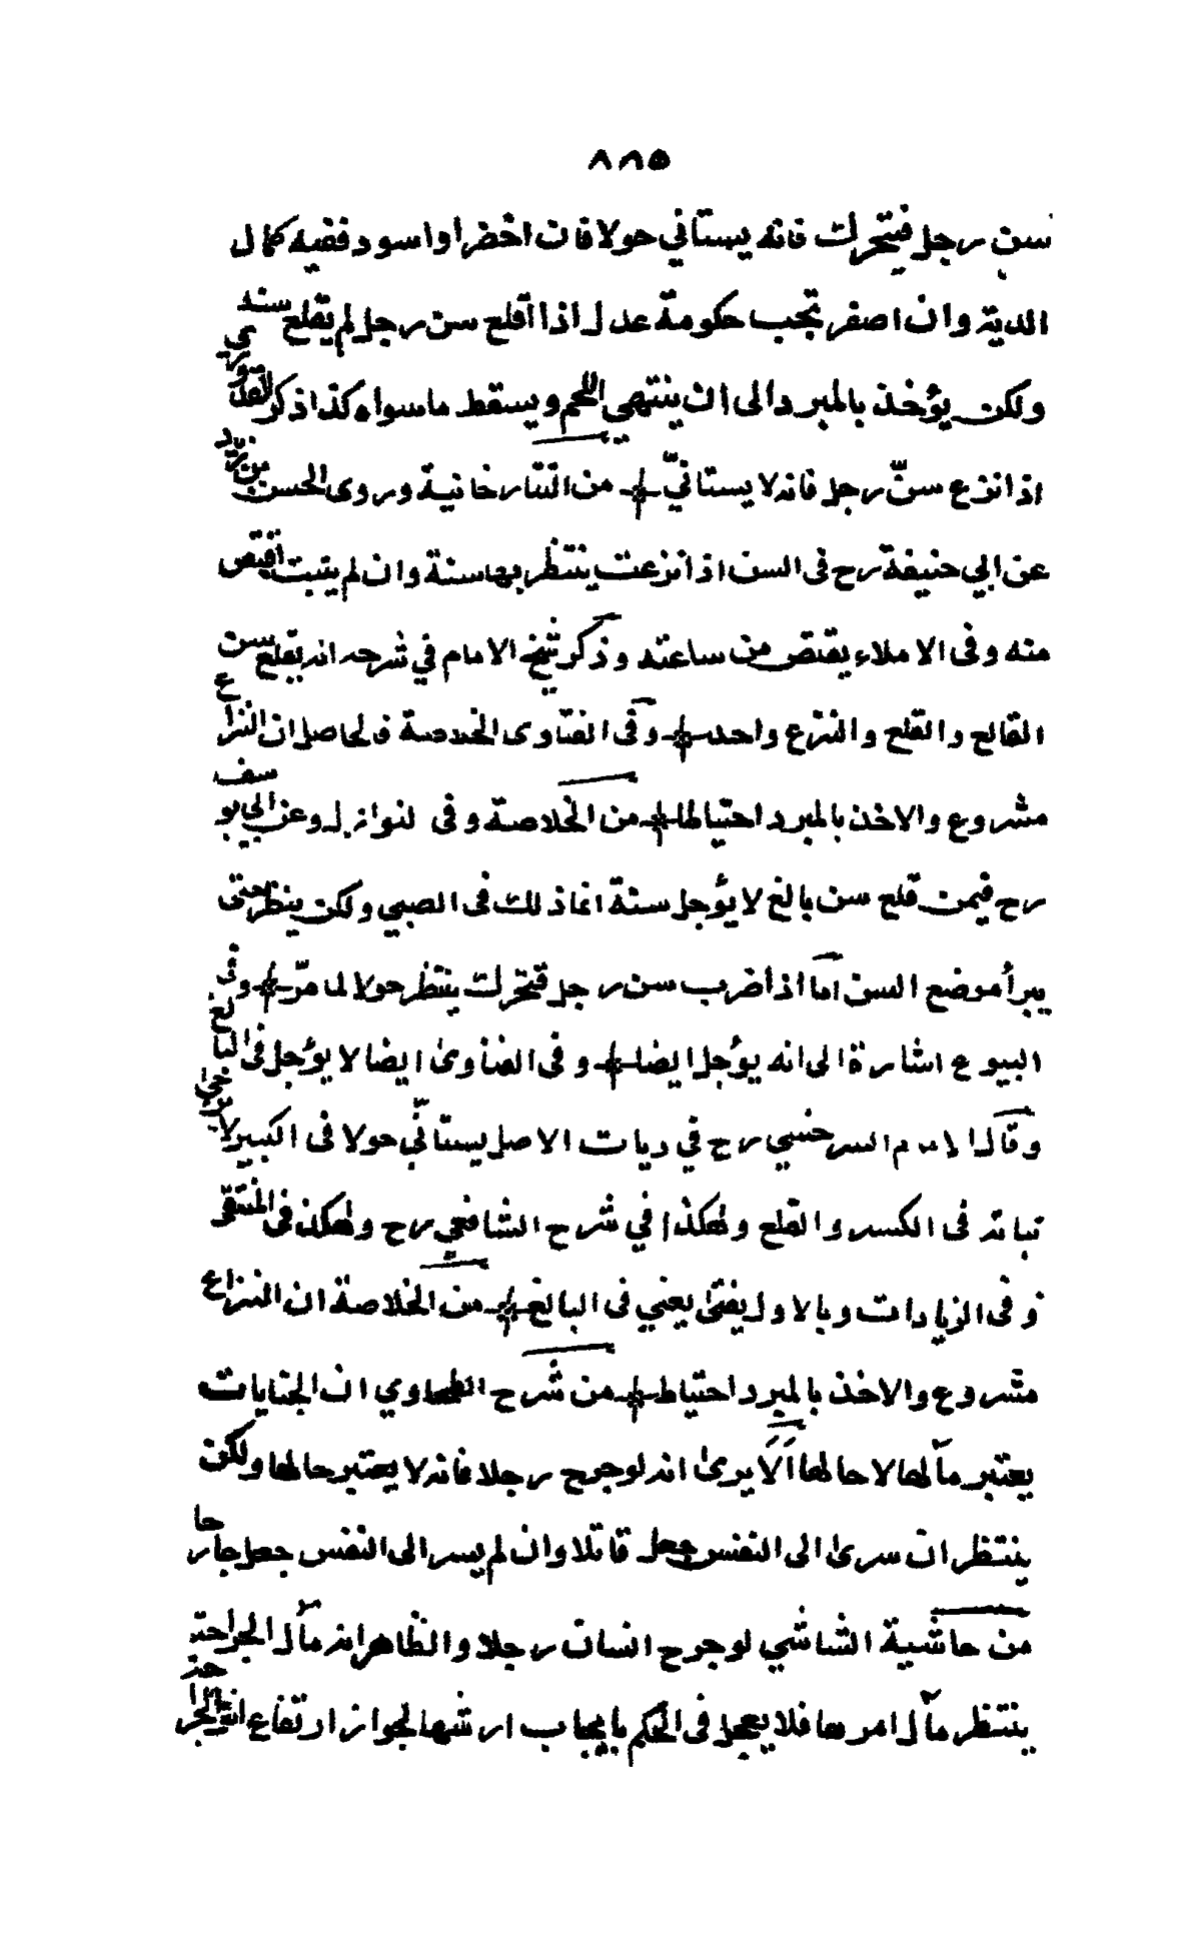 ٨٨٥
سن رجل فيتحرك فانه يستأني حولا فان اخضر او اسود ففيه كمال
الدية وان اصفر تجب حكومة عدل اذا اقلع سن رجل لم يقلع سنه
ولكن يؤخذ بالمبرد الى ان ينتهي اللحم ويسقط ما سواه كذا ذكر القدوري
اذا نزع سنّ رجل فانه لا يستانيّ من التتارخانية وروى الحسن بن زياد
عن ابي حنيفة رح فى السن اذا نزعت ينتظر بها سنة وان لم ينبت اقتص
منه وفى الاملاء يقتص من ساعته وذكر شيخ الامام في شرحه انه يقلع سن
القالع والقلع والنزع واحد وفى الفتاوى الخلاصة فالحاصل ان النزاع
مشروع والاخذ بالمبرد احتياطا من الخلاصة وفى لنوازل وعن ابي يوسف
رح فيمن قلع سن بالغ لا يؤجل سنة انما ذلك فى الصبي ولكن ينظر حتى
يبرأ موضع السن اما اذا ضرب سن رجل فتحرك ينتظر حولا لما مرّ وفى
البيوع اشارة الى انه يؤجل ايضا وفى الفتاوى ايضا لا يؤجل فى البالغ
وقال الامام السرخسي رح في ديات الاصل يستأنّي حولا فى الكبير لا
نباته فى الكسر والقلع وهكذا في شرح الشافعي رح وهكذا فى المنتقى
وفى الزيادات وبالاول يفتى يعني فى البالغ من الخلاصة ان النزاع
مشروع والاخذ بالمبرد احتياط من شرح الطحاوي ان الجنايات
يعتبر مآلها لا حالها اَلَا يرى انه لو جرح رجلا فانه لا يعتبر حالها ولكن
ينتظر ان سرى الى النفس جعل قاتلا وان لم يسر الى النفس جعل جارحا
من حاشية الشاشي لو جرح انسان رجلا والظاهر انه مآل الجراحة
ينتظر مآل امرها فلا يعجل فى الحكم بايجاب ارشها لجواز ارتفاع اثر الجراحة